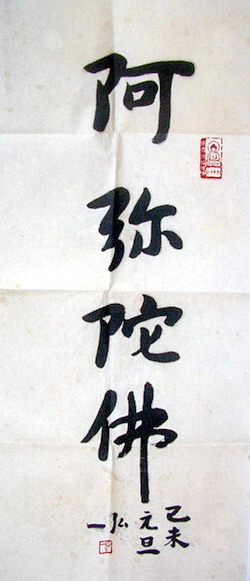 阿弥陀佛
己未
元旦
弘一